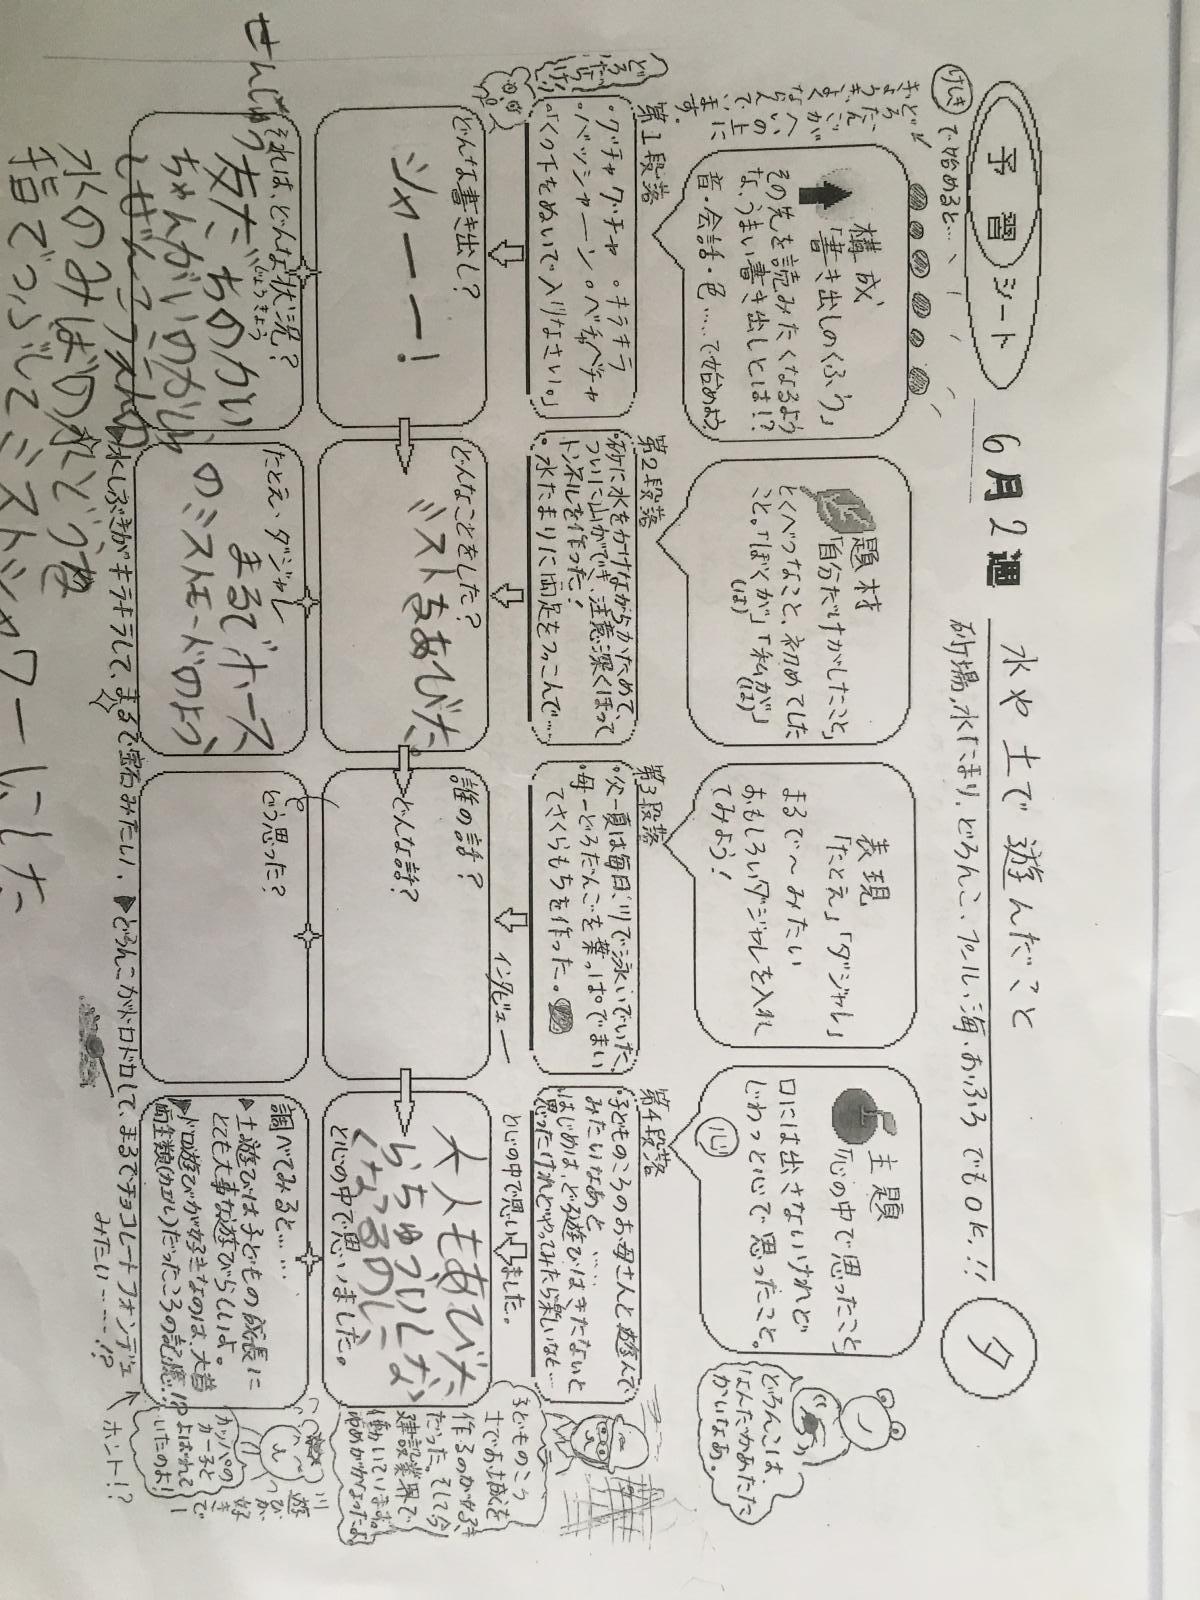 予習シート
6月2週
水や土で遊んだこと
砂場、水たまり、どろんこ、プール、海、おふろでもOK!!
夕
けしき
で始めると…
ならんでいます。
構成
「書き出しのくふう」
その先を読みたくなるよう
な、うまい書き出しとは!?
音・会話・色……で始めよう
題材
「自分だけがしたこと」
とくべつなこと、初めてした
こと。「ぼくが」「私が」
(は) (は)
表現
「たとえ」「ダジャレ」
まるで〜みたい
おもしろいダジャレを入れ
てみよう!
主題
「心の中で思ったこと」
口には出さないけれど
じわっと心で思ったこと。
心
どろんこは、
なんだかあたた
かいなあ。
第1段落
・グチャグチャ ・キラキラ
・バッシャーン ・ベチャベチャ
・「くつ下をぬいで入りなさい。」
第2段落
・砂に水をかけながらかためて、
ついに山ができ、注意深くほって
トンネルを作った!
・水たまりに両足をつっこんで……
第3段落
・父―夏は毎日、川で泳いでいた。
・母―どろだんごを葉っぱでまい
てさくらもちを作った。
第4段落
・子どものころのお母さんと遊んで
みたいなあと……
はじめは、どろ遊びはきたないと
思ったけれどやってみたら楽しいなと…
と心の中で思いました。
インタビュー
どんな書き出し?
シャーー!
どんなことをした?
ミストをあびた。
誰の話?
どんな話?
大人もあびた
らちゅういしな
くなるのに、
と心の中で思いました。
子どものころ
土でお城を
作るのが好き
だった。そして今
建設業界で
働いています。
ゆめがかなったよ
それは、どんな状況?
じょうきょう
たとえ、ダジャレ
まるでホース
のミストモードのよう
どう思った?
調べてみると……
▲土遊びは子どもの成長に
とても大事な遊びらしいよ。
▲ドロ遊びが好きなのは、大昔
両生類(カエル)だったころの記憶…!?
川遊びが好きで
カッパの
カー子と
よばれて
いたのよ!
▲水しぶきがキラキラして、まるで宝石みたい。
▲どろんこがドロドロして、まるでチョコレートフォンデュ
みたい……!?
ホント!?
せんしゅう友だちのかい
水のみばの水どうを
指でつぶしてミストシャワーにした